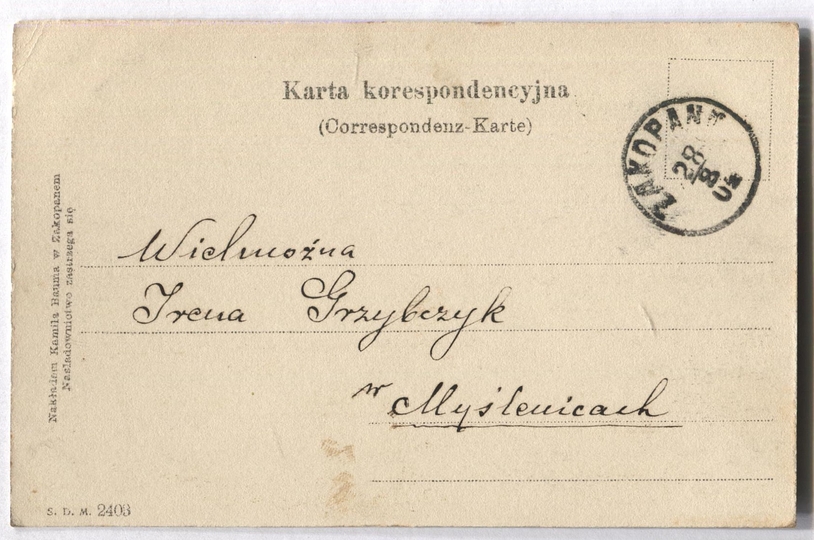 Karta korespondencyjna
(Correspondenz-Karte)
ZAKOPANE
28/8
Wielmożna
Irena Grzybczyk
w Myślenicach
Nakładem Kamila Bauma w Zakopanem
Naśladownictwo zastrzega się
S. D. M. 2403